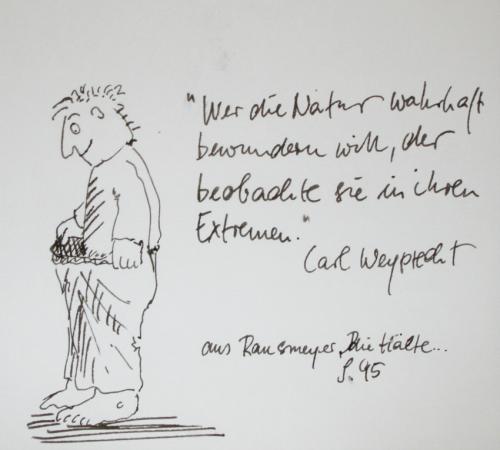 "Wer die Natur wahrhaft
bewundern will, der
beobachte sie in ihren
Extremen."
Carl Weyprecht
aus Ransmeyer, Die
S. 95